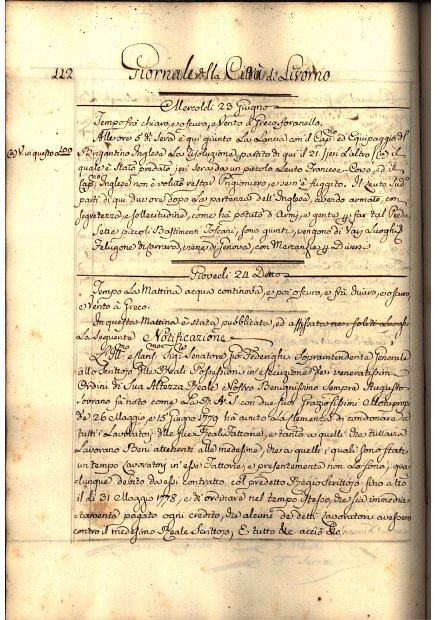 112 Giornale della Città di Livorno
Mercoldì 23 Giugno
Tempo frà chiaro, e oscuro, e Vento à Greco foranello.
Alle ore 5 di Sera è qui giunto La Lancia con il Cap.no ed Equipaggio del
Brigantino Inglese La Risoluzione partito di qui il 21 Jeri l'altro (a) il
quale è stato predato jeri sera da un piccolo Leuto Francese Corso, ed il
Cap.no Inglese non è voluto restar Prigioniero, e se n'è fuggito. Il Leuto
partì di qui due ore dopo La partenza dell'Inglese, avendo armato, con
segretezza, e sollecitudine, come hà potuto di Armi, e gente p far tal Preda
Sette piccoli Bastimenti Toscani, sono giunti, vengono da Vari Luoghi
Felugone di Carrara, viene di Genova, con Mercanzie p Diversi
(a) V. in questo 100
Giovedì 24 Detto
Tempo La Mattina acqua continova, e poi oscuro, e frà chiaro, e oscuro,
e Vento à Greco.
In questa Mattina è stata pubblicata, ed affissata ne soliti Luoghi
La seguente Notificazione
L'Ill.mo e Clariss.mo Sig.r Senatore Gio Federighi Soprantendente Generale
allo Scrittojo delle Reali Possessioni in esecuzione dei veneratissimi
Ordini di Sua Altezza Reale Nostro Benignissimo Sempre Augusto
Sovrano fà noto come La R. A. S. con due suoi Graziosissimi Motupropri
de 26 Maggio, e 15 Giugno 1779 hà avuto La Clemenza di condonare a
tutti i Lavoratori delle sue Reali Fattorie, e tanto a quelli che tuttavia
Lavorano Beni attenenti alle medesime, che a quelli i quali sono stati
un tempo Lavoratori in esse Fattorie, e presentemente non lo sono, qua-
lunque debito da essi contratto col predetto Regio Scrittojo fino a tto
il dì 31 Maggio 1778, e d'ordinare nel tempo stesso, che sia immedia-
tamente pagato ogni credito, che alcuni de detti Lavoratori avessero
contro il medesimo Reale Scrittojo; E tutto &c acciò &c